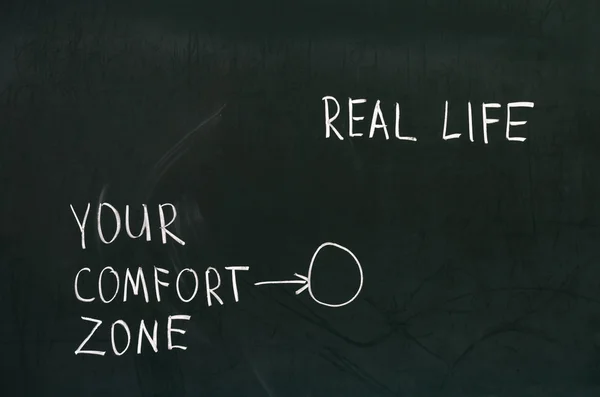 REAL LIFE
YOUR
COMFORT
ZONE